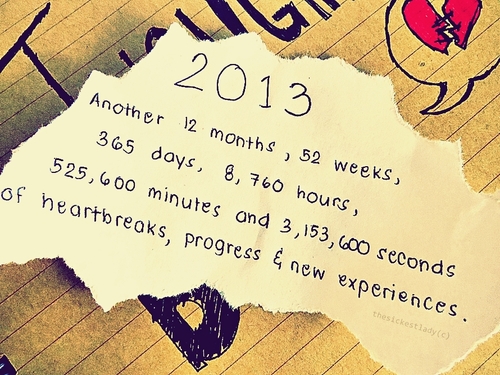 2013
Another 12 months, 52 weeks,
365 days, 8,760 hours,
525,600 minutes and 3,153,600 seconds
of heartbreaks, progress & new experiences.
thesickestlady(c)